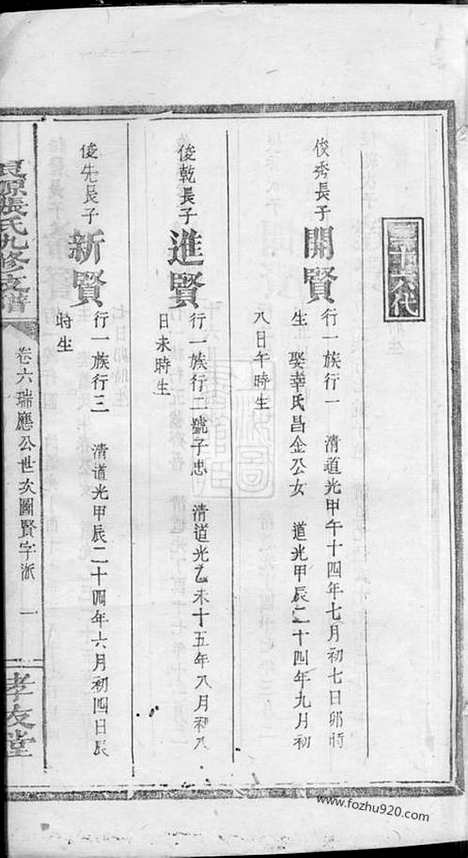 三十六代
俊秀長子
開賢
行一族行一 清道光甲午十四年七月初七日卯時
生 娶幸氏昌金公女 道光甲辰二十四年九月初
八日午時生
俊乾長子
進賢
行一族行二號子忠 清道光乙未十五年八月初八
日未時生
俊先長子
新賢
行一族行三 清道光甲辰二十四年六月初四日辰
時生
源張氏九修支譜
卷六瑞應公世次圖賢字派 一
孝友堂
www.fozhu920.com